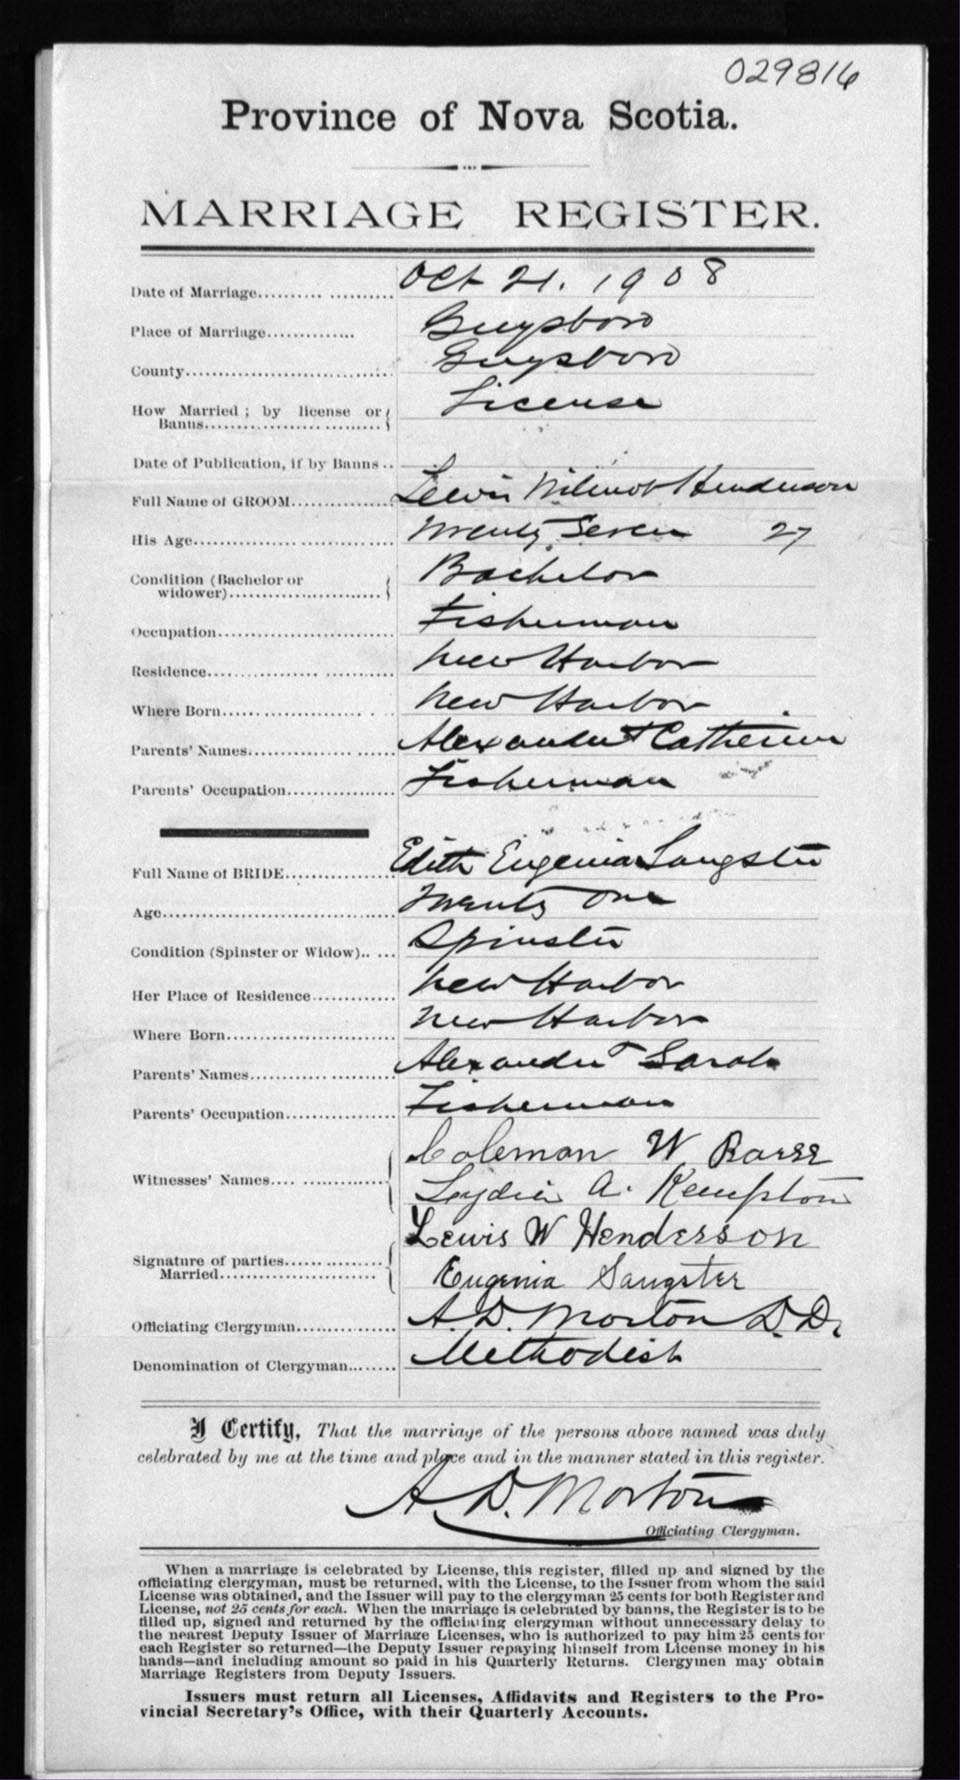 029816
Province of Nova Scotia.
MARRIAGE REGISTER.
Date of Marriage.................... Oct 21. 1908
Place of Marriage............. Guysboro
County............................... Guysboro
How Married ; by license or License
Banns............................
Date of Publication, if by Banns..
Full Name of GROOM............... Lewis Wilmot Henderson
His Age............................... Twenty Seven 27
Condition (Bachelor or Bachelor
widower)........................
Occupation........................... Fisherman
Residence............................ New Harbor
Where Born......................... New Harbor
Parents' Names...................... Alexander + Catherine
Parents' Occupation................. Fisherman
Full Name of BRIDE................ Edith Eugenia Sangster
Age................................... Twenty One
Condition (Spinster or Widow)..... Spinster
Her Place of Residence............. New Harbor
Where Born.......................... New Harbor
Parents' Names...................... Alexander + Sarah
Parents' Occupation................. Fisherman
Coleman W
Witnesses' Names.................
Lydia A. Kempton
Lewis W Henderson
Signature of parties...............
Married.........................
Eugenia Sangster
Officiating Clergyman............... A. D. Morton D.D.
Denomination of Clergyman........ Methodist
I Certify, That the marriage of the persons above named was duly
celebrated by me at the time and place and in the manner stated in this register.
A. D. Morton
Officiating Clergyman.
When a marriage is celebrated by License, this register, filled up and signed by the
officiating clergyman, must be returned, with the License, to the Issuer from whom the said
License was obtained, and the Issuer will pay to the clergyman 25 cents for both Register and
License, not 25 cents for each. When the marriage is celebrated by banns, the Register is to be
filled up, signed and returned by the officiating clergyman without unnecessary delay to
the nearest Deputy Issuer of Marriage Licenses, who is authorized to pay him 25 cents for
each Register so returned—the Deputy Issuer repaying himself from License money in his
hands—and including amount so paid in his Quarterly Returns. Clergymen may obtain
Marriage Registers from Deputy Issuers.
Issuers must return all Licenses, Affidavits and Registers to the Pro-
vincial Secretary's Office, with their Quarterly Accounts.